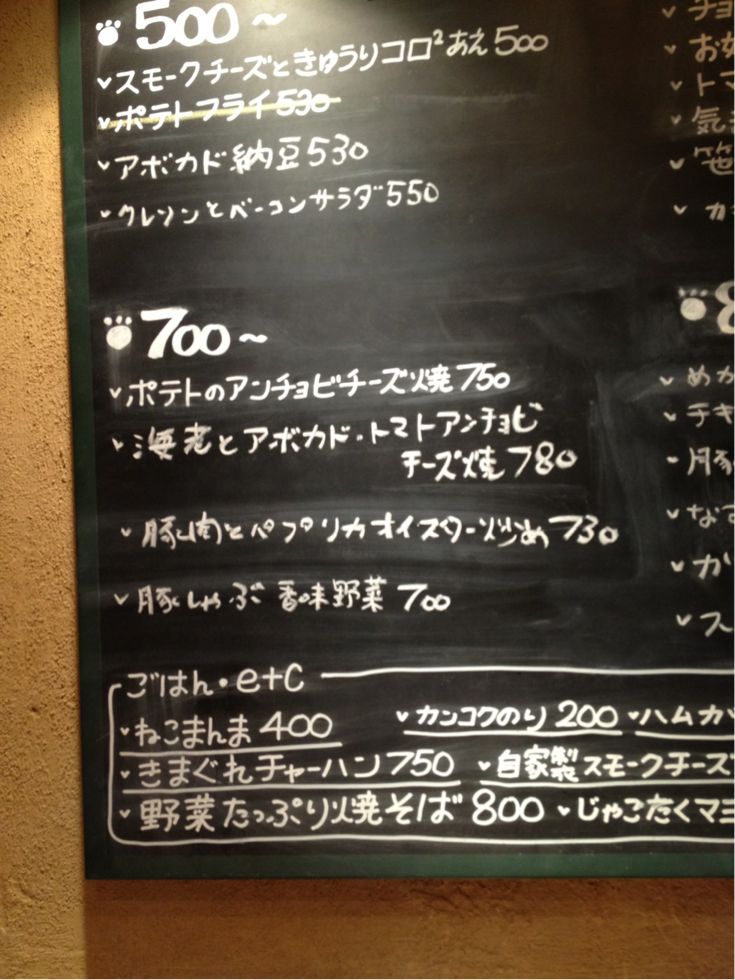 500～
スモークチーズときゅうりコロ²あえ500
ポテトフライ530
アボカド納豆530
クレソンとベーコンサラダ550
700～
ポテトのアンチョビチーズ焼750
海老とアボカド・トマトアンチョビ
チーズ焼780
豚肉とパプリカオイスターソース炒め730
豚しゃぶ 香味野菜 700
ごはん・etc
ねこまんま400
カンコクのり200
ハムカツ
きまぐれチャーハン750
自家製スモークチーズ
野菜たっぷり焼そば800
じゃこたくマヨ
チョ
お好
トマ
気
笹
カ
8
めか
チキ
豚
なす
ガ
ス